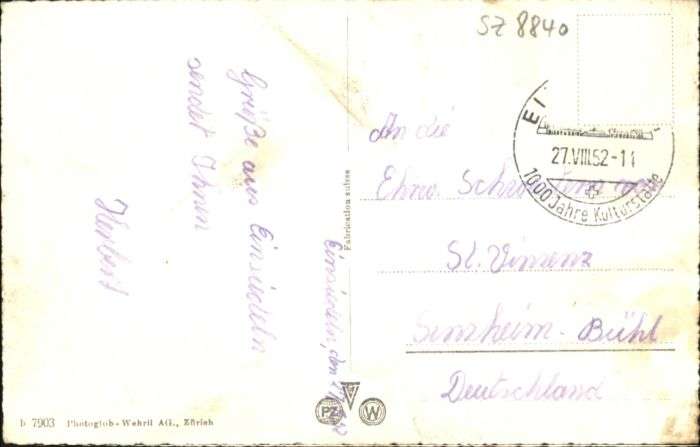 SZ 8840
EI
27.VIII.52-11
1000 Jahre Kulturstätte
Grüße aus Einsiedeln
sendet Ihnen
Herbert
Einsiedeln, den
Fabrication suisse
An die
Ehrw. Schwestern von
St. Vinzenz
Sinzheim-Bühl
Deutschland
PZ
W
b 7903 Photoglob-Wehrli AG., Zürich